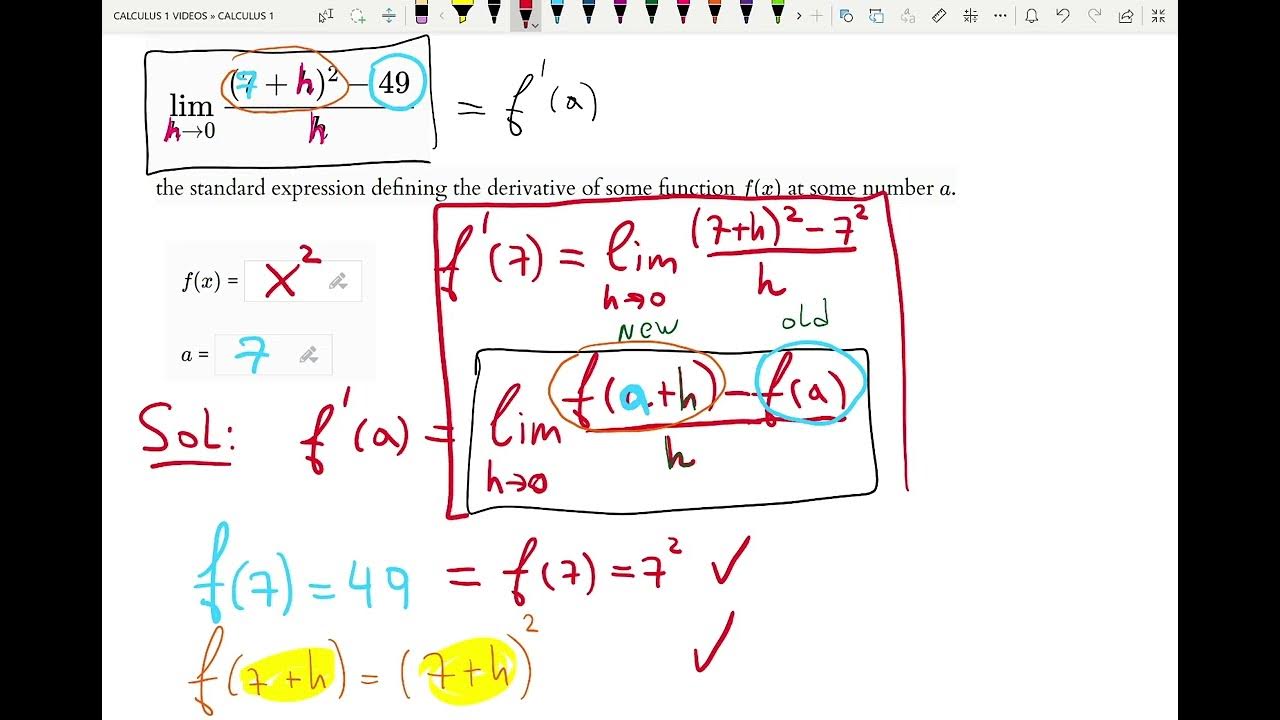 CALCULUS 1 VIDEOS » CALCULUS 1
lim h→0 ((7 + h)² − 49)/h = f'(a)
the standard expression defining the derivative of some function f(x) at some number a.
f'(7) = lim h→0 ((7+h)² − 7²)/h
f(x) = x²
a = 7
New old
Sol: f'(a) = lim h→0 (f(a+h) − f(a))/h
f(7) = 49 = f(7) = 7² ✓
f(7+h) = (7+h)² ✓